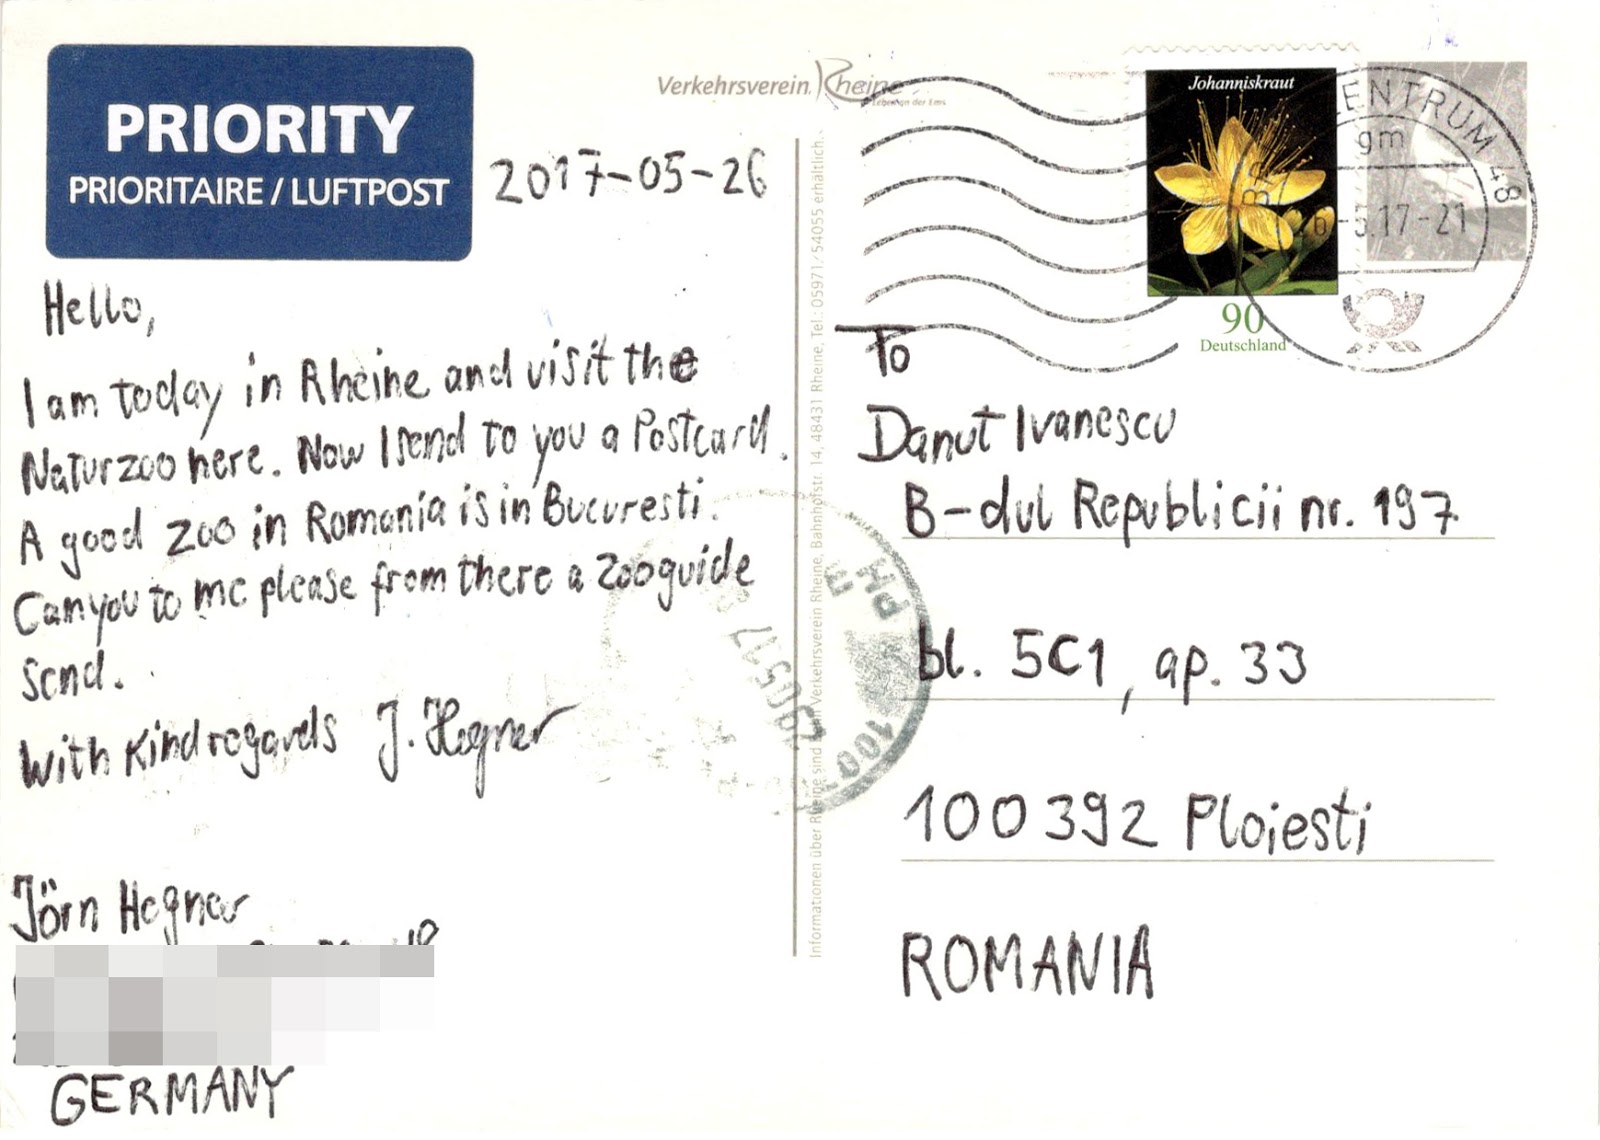 PRIORITY
PRIORITAIRE / LUFTPOST
2017-05-26
Hello,
I am today in Rheine and visit the
Naturzoo here. Now I send to you a Postcard.
A good zoo in Romania is in Bucuresti.
Can you to me please from there a Zooguide
send.
With Kind regards J. Hegner
Jörn Hegner
GERMANY
Verkehrsverein Rheine
Leben an der Ems
Informationen über Rheine sind beim Verkehrsverein Rheine, Bahnhofstr. 14, 48431 Rheine, Tel.: 05971/54055 erhältlich.
Johanniskraut
90
Deutschland
ENTRUM 48
gm
.17-21
PH
100
To
Danut Ivanescu
B-dul Republicii nr. 197
bl. 5C1, ap. 33
100392 Ploiesti
ROMANIA